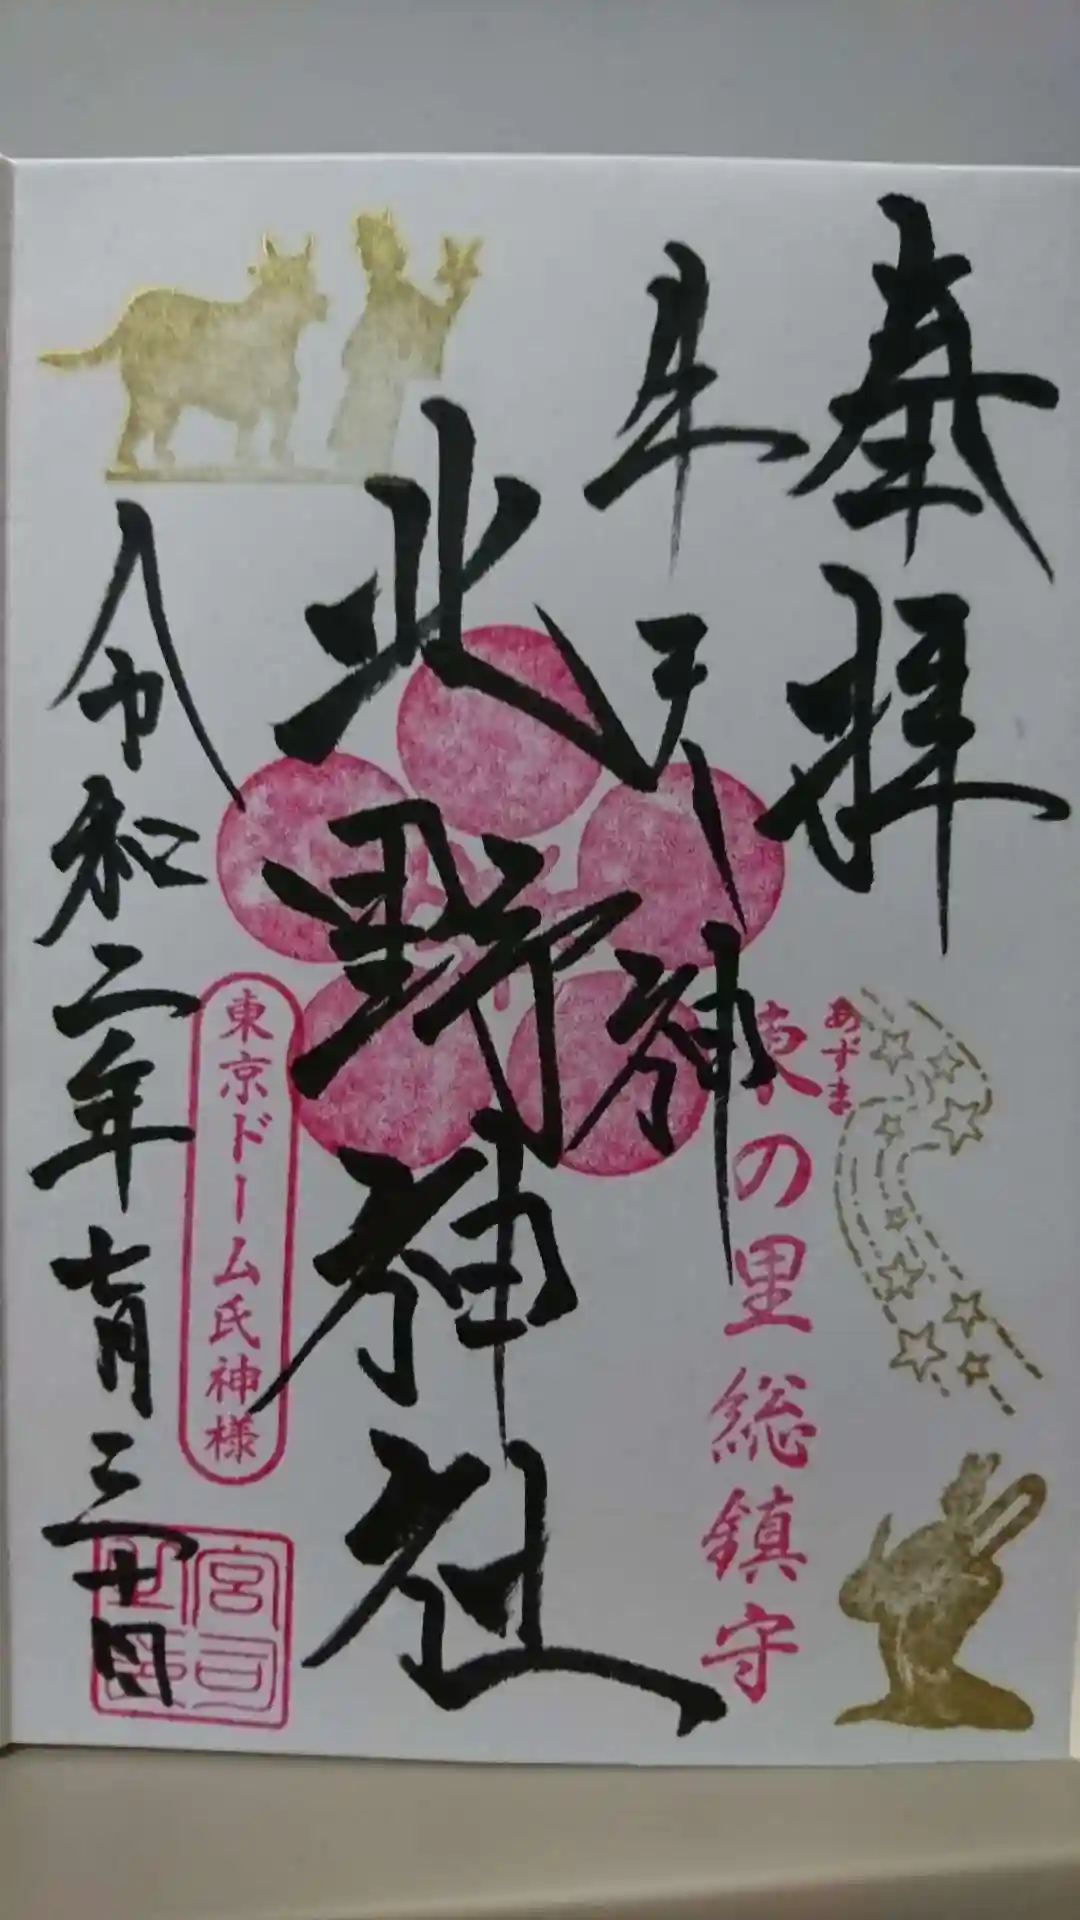 奉拝
牛天神
北野神社
令和二年七月三十日
あずま
東の里総鎮守
東京ドーム氏神様
宮司